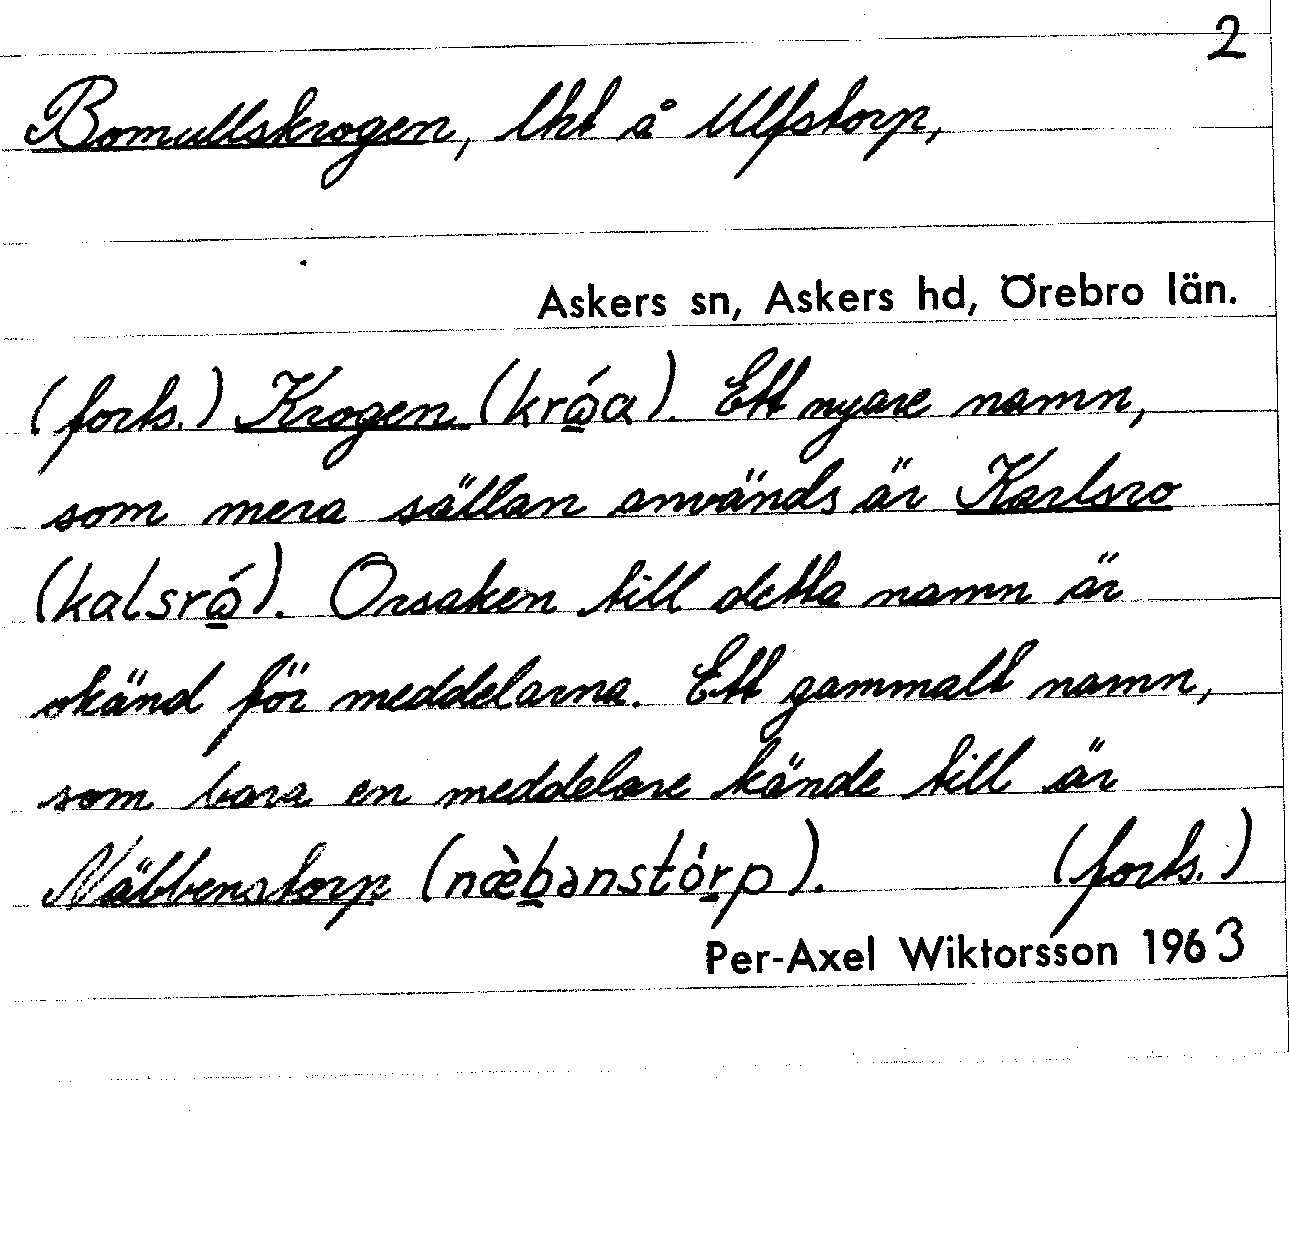 2
Bomullskrogen, lht å Ulfstorp,
Askers sn, Askers hd, Örebro län.
(forts.) Krogen (krǻ̱a). Ett nyare namn,
som mera sällan används är Karlsro
(kalsrǻ̱). Orsaken till detta namn är
okänd för meddelarna. Ett gammalt namn,
som bara en meddelare kände till är
Näbbenstorp (næ̀ḇənstóṟp). (forts.)
Per-Axel Wiktorsson 1963